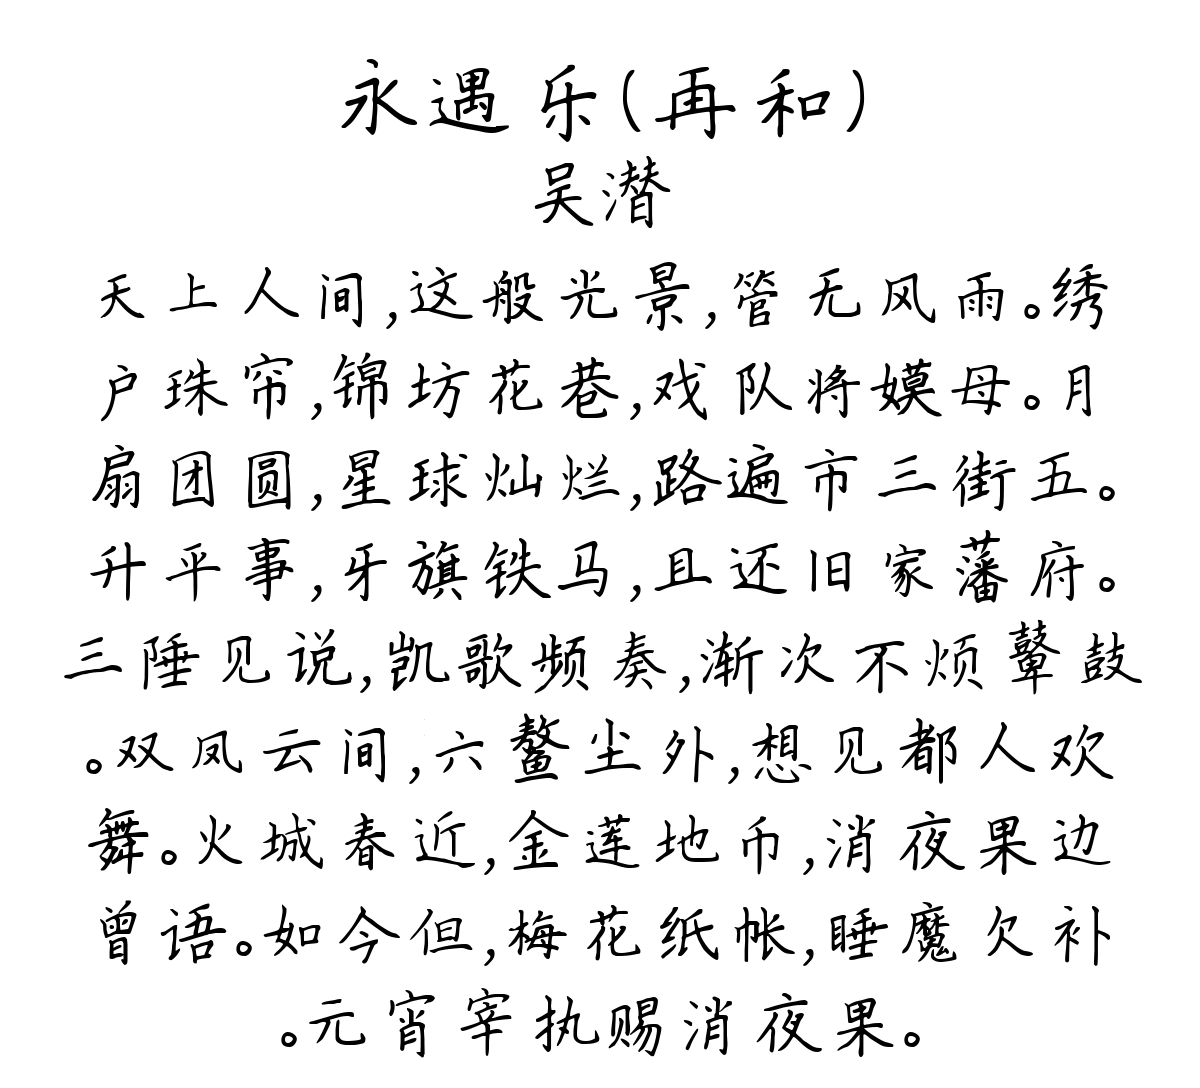 永遇乐(再和)
吴潜
天上人间,这般光景,管无风雨。绣
户珠帘,锦坊花巷,戏队将嫫母。月
扇团圆,星球灿烂,路遍市三街五。
升平事,牙旗铁马,且还旧家藩府。
三陲见说,凯歌频奏,渐次不烦鼙鼓
。双凤云间,六鳌尘外,想见都人欢
舞。火城春近,金莲地币,消夜果边
曾语。如今但,梅花纸帐,睡魔欠补
。元宵宰执赐消夜果。